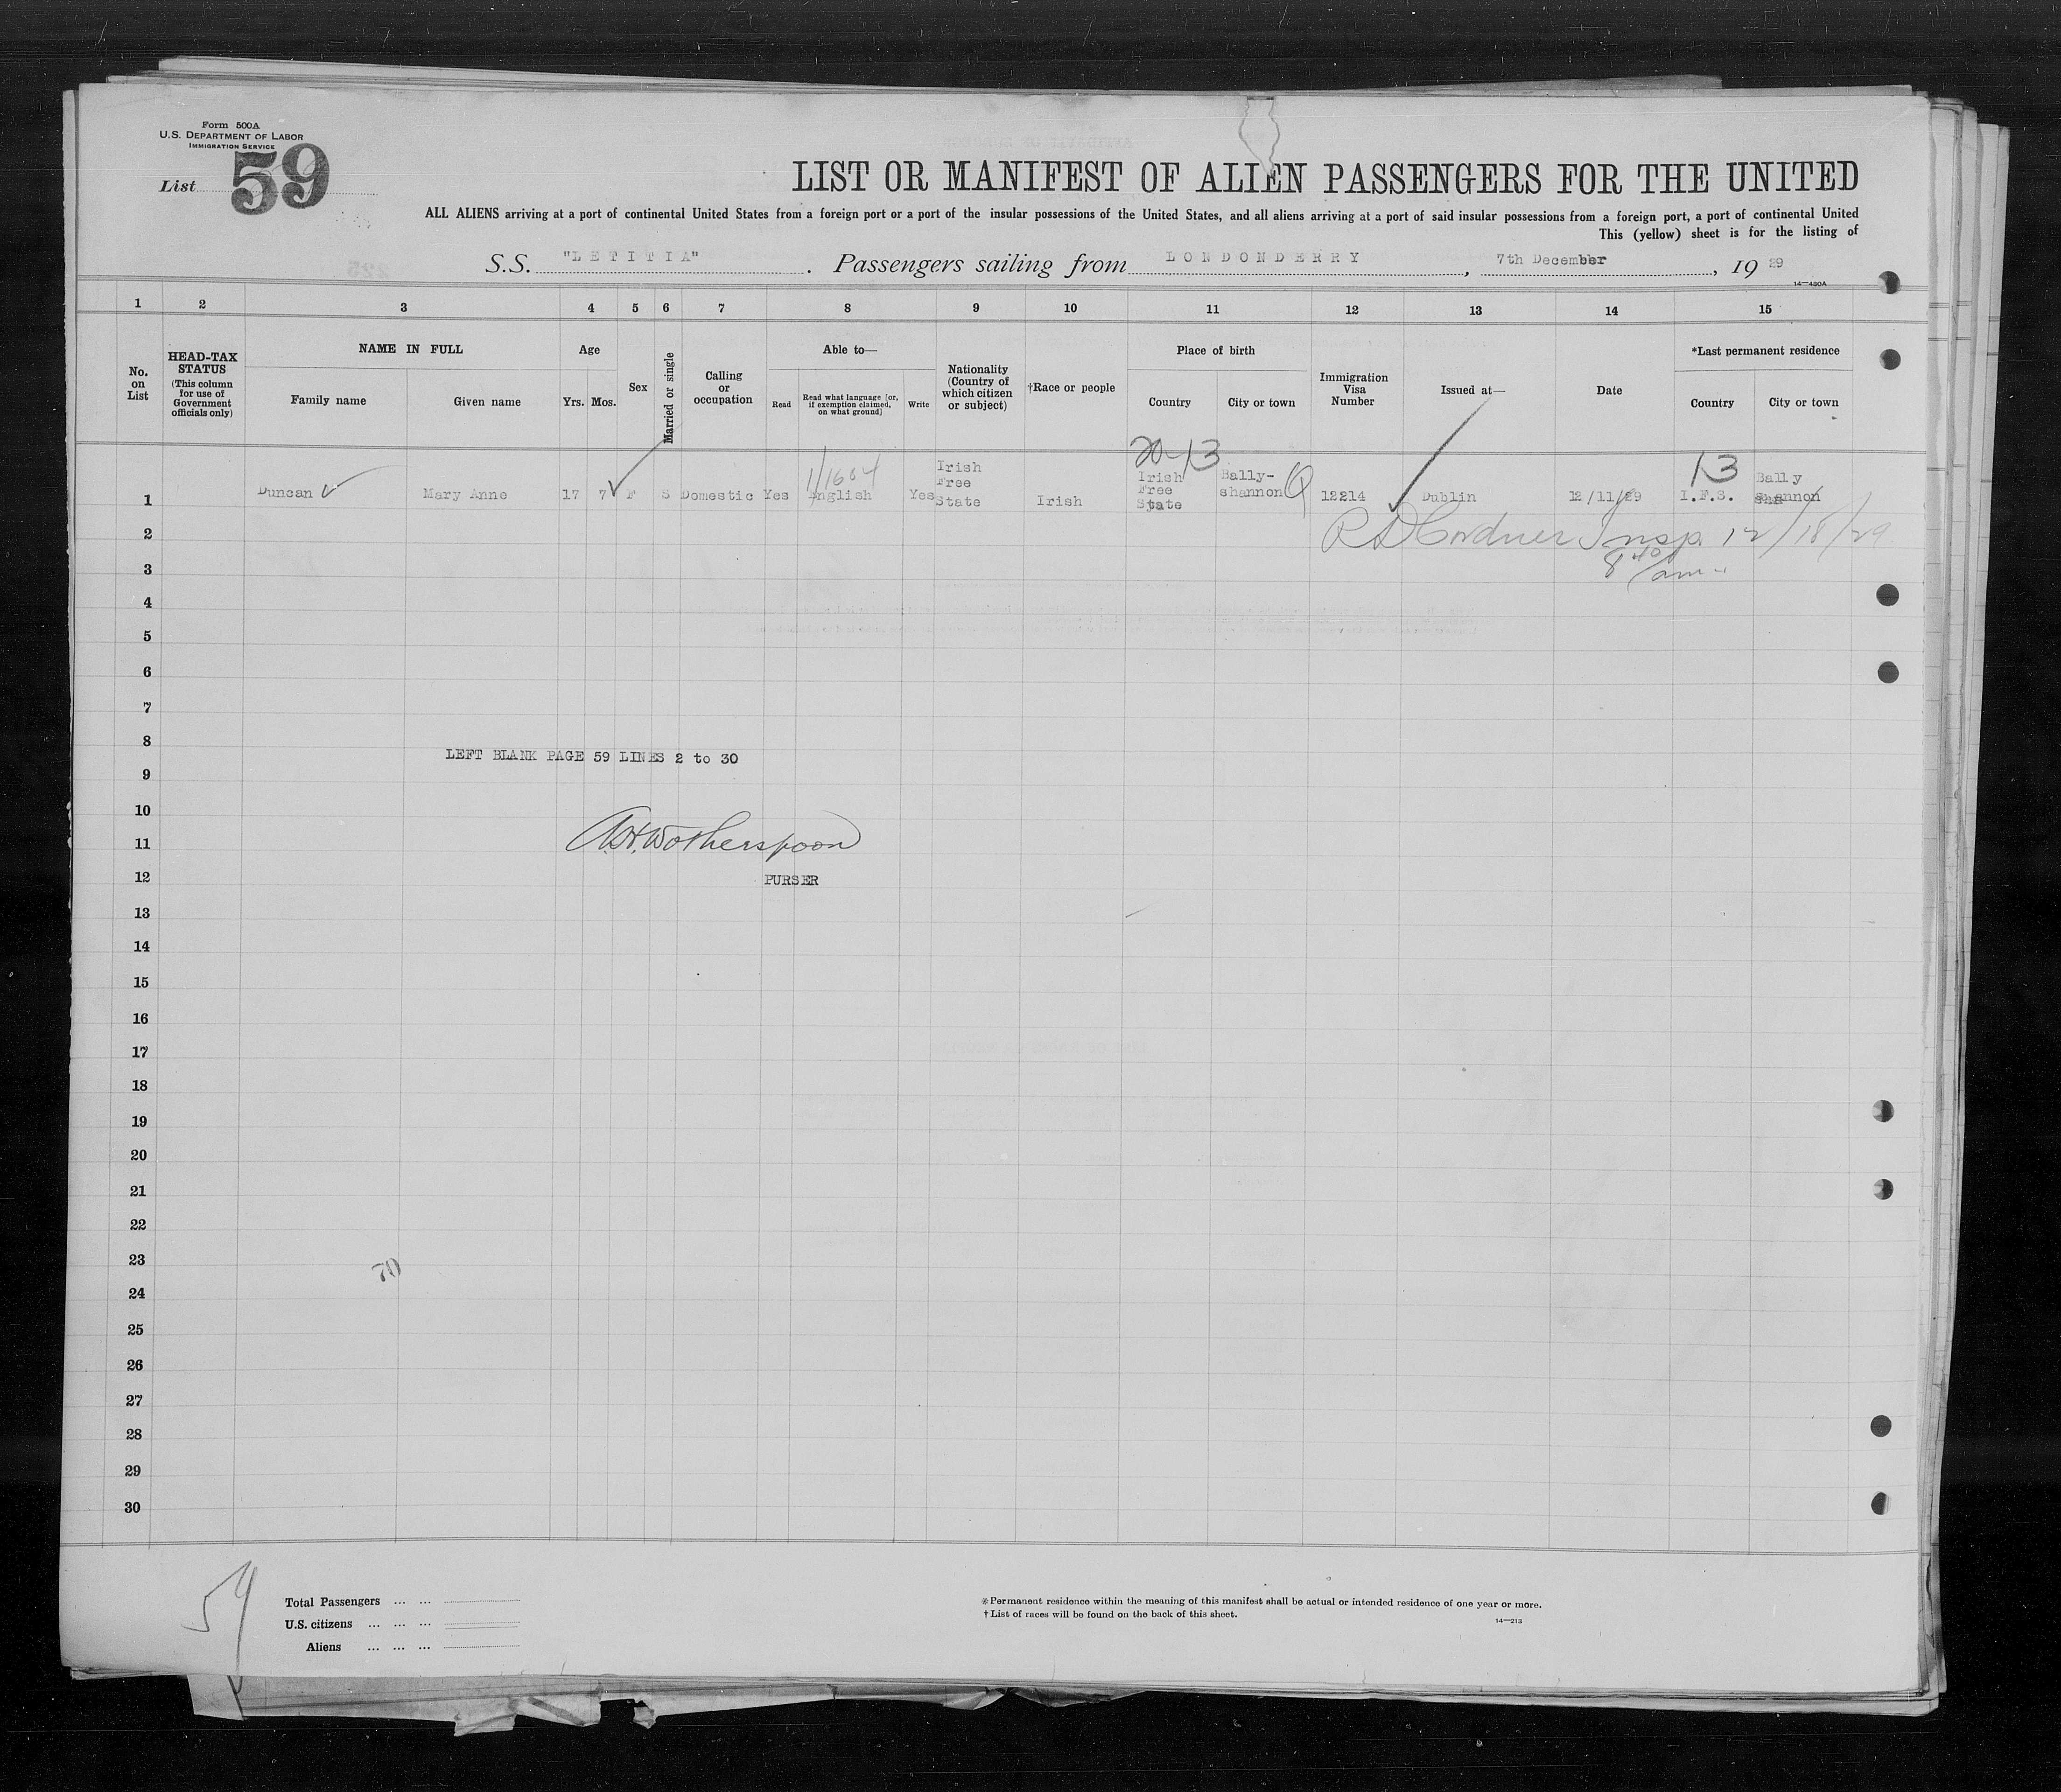 Form 500A
U.S. DEPARTMENT OF LABOR
IMMIGRATION SERVICE
List 59
LIST OR MANIFEST OF ALIEN PASSENGERS FOR THE UNITED
ALL ALIENS arriving at a port of continental United States from a foreign port or a port of the insular possessions of the United States, and all aliens arriving at a port of said insular possessions from a foreign port, a port of continental United
This (yellow) sheet is for the listing of
S.S. "LETITIA". Passengers sailing from LONDONDERRY, 7th December, 19 29
14—480A
1 2 3 4 5 6 7 8 9 10 11 12 13 14 15
No. on List
HEAD-TAX STATUS (This column for use of Government officials only)
NAME IN FULL
Family name
Given name
Age
Yrs. Mos.
Sex
Married or single
Calling or occupation
Able to—
Read
Read what language [or, if exemption claimed, on what ground]
Write
Nationality (Country of which citizen or subject)
†Race or people
Place of birth
Country
City or town
Immigration Visa Number
Issued at—
Date
*Last permanent residence
Country
City or town
20-13
13
1/1604
1 Duncan Mary Anne 17 7 F S Domestic Yes English Yes Irish Free State Irish Irish Free State Bally-shannon 12214 Dublin 12/11/29 I.F.S. Bally shannon
2
Cordner Insp. 12/18/29
3
8 40 am
4
5
6
7
8
LEFT BLANK PAGE 59 LINES 2 to 30
9
10
11
Wotherspoon
12
PURSER
13
14
15
16
17
18
19
20
21
22
23
70
24
25
26
27
28
29
30
59
Total Passengers ... ...
U.S. citizens ... ... ...
Aliens ... ... ...
*Permanent residence within the meaning of this manifest shall be actual or intended residence of one year or more.
†List of races will be found on the back of this sheet.
14—213